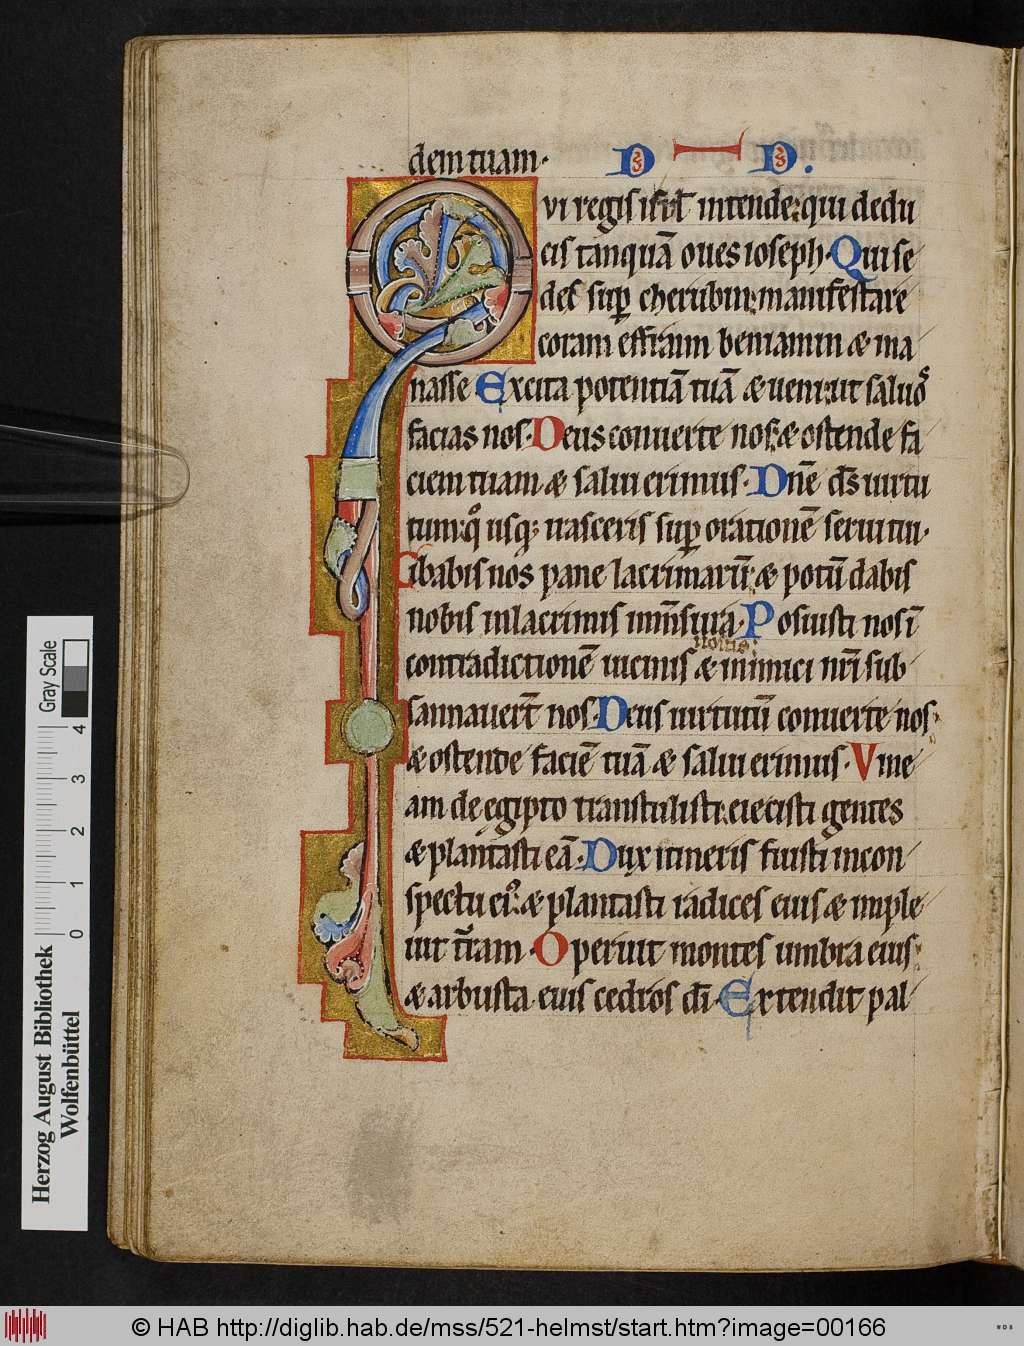 dem tuam· D D.
Qui regis isrl̅ intende: qui dedu
cis tanquā oues ioseph· Qui se
des sup̱ cherubin: manifestare
coram effraim beniamin & ma
nasse Excita potentiā tuā & ueni: ut saluos
facias nos· Deus conuerte nos: & ostende fa
ciem tuam & salui erimus· Dn̄e ds̄ uirtu
tum: quo usq; irasceris sup̱ orationē serui tui·
Cibabis nos pane lacrimarū: & potū dabis
nobis in lacrimis in m̄sura· Posuisti nos ī
nostris:
contradictionē uicinis & inimici nr̄i sub
sannauerūt nos· Deus uirtutū conuerte nos
& ostende faciē tuā & salui erimus· Vine
am de egipto transtulisti: eiecisti gentes
& plantasti eā· Dux itineris fuisti in con
spectu ei⁹: & plantasti radices eius & imple
uit t̄ram· Operuit montes umbra eius:
& arbusta eius cedros dī· Extendit pal
Gray Scale
4
3
2
1
0
Herzog August Bibliothek
Wolfenbüttel
© HAB http://diglib.hab.de/mss/521-helmst/start.htm?image=00166